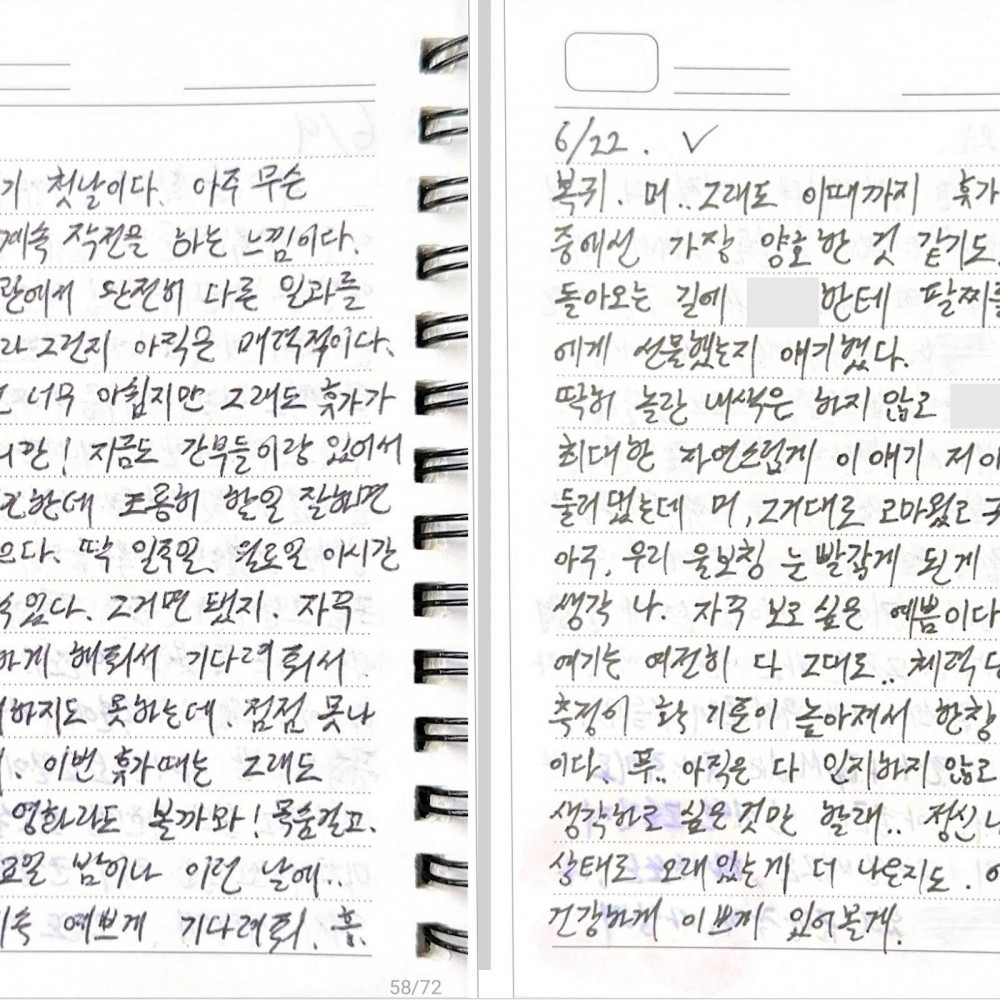 가 첫날이다. 아주 무슨
계속 작전을 하는 느낌이다.
관에서 완전히 다른 일과를
라 그런지 아직은 매력적이다.
너무 아쉽지만 그래도 휴가가
니깐! 지금도 간부들이랑 있어서
한데 조용히 할일 잘하면
다. 딱 일주일, 월요일 이시간
있다. 그거면 됐지. 자꾸
하게 해줘서 기다려줘서.
하지도 못하는데. 점점 못나
. 이번 휴가때는 그래도
영화라도 볼까봐! 목숨걸고.
요일 밤이나 이런 날에..
계속 예쁘게 기다려줘. 흠.
58/72
6/22. ✓
복귀. 머.. 그래도 이때까지 휴가
중에선 가장 양호한 것 같기도.
돌아오는 길에 한테 팔찌를
에게 선물했는지 얘기했다.
딱히 놀란 내색은 하지 않고
최대한 자연스럽게 이얘기 저얘
둘러댔는데 머, 그거대로 고마웠고
아주, 우리 울보칭 눈 빨갛게 된게
생각 나. 자꾸 보고 싶은 예쁨이다
여기는 여전히 다 그대로.. 체력
측정이 확 기준이 높아져서 한창
이다. 푸.. 아직은 다 인지하지 않고
생각하고 싶은 것만 할래.. 정신
상태로 오래있는게 더 나은지도.
건강하게 이쁘게 있어볼게.